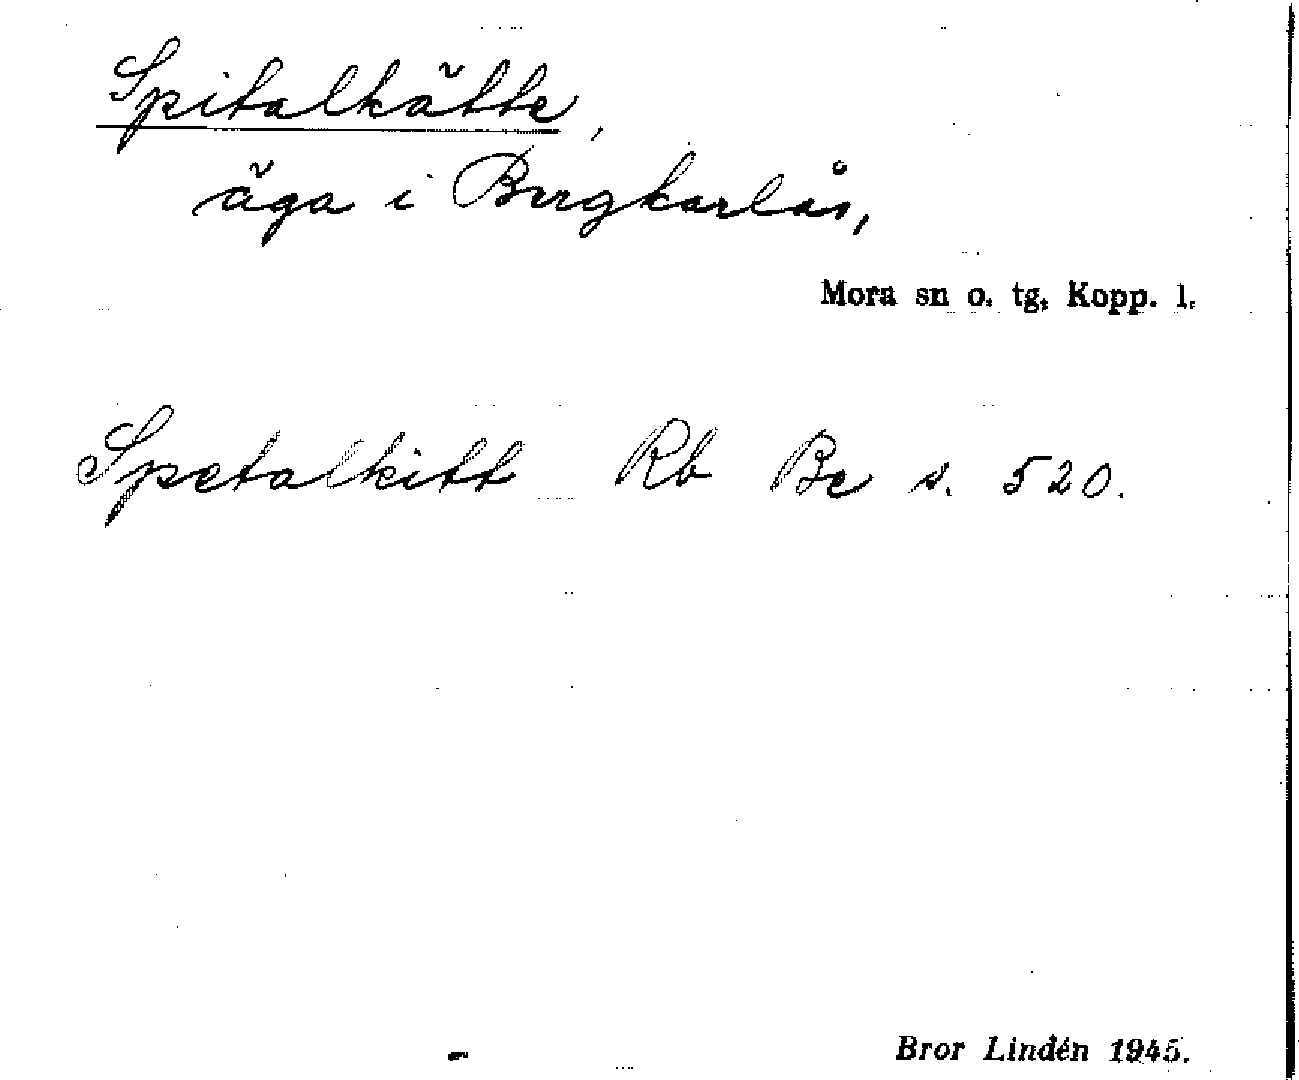 Spitalkätte,
äga i Bergkarlås,
Mora sn o. tg, Kopp. l.
Spetalkitt Rb Be s. 520.
Bror Lindén 1945.